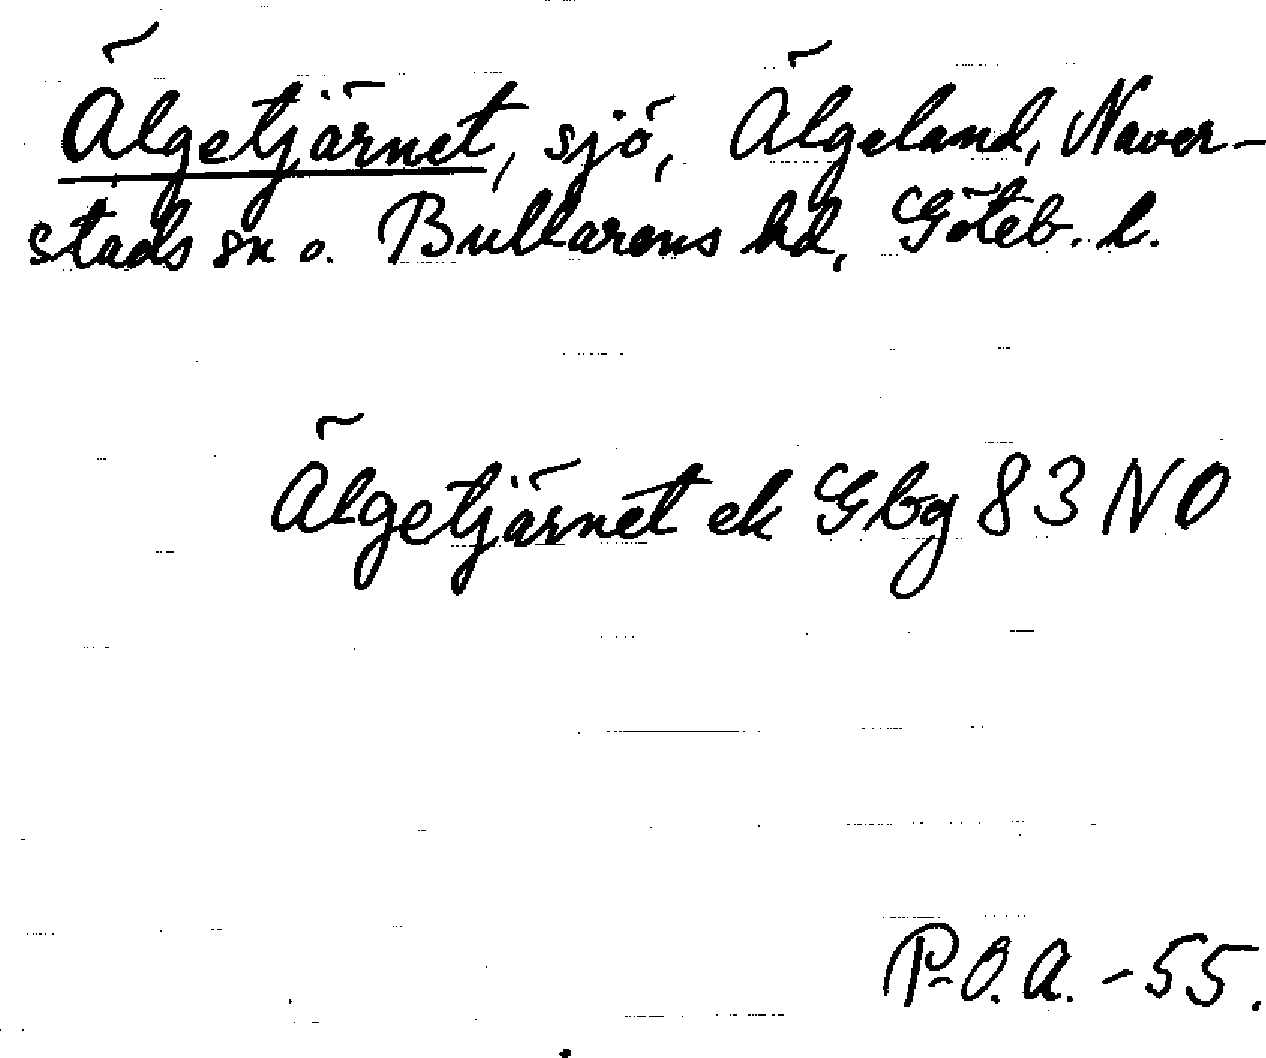 Älgetjärnet, sjö, Älgeland, Naver-
stads sn o. Bullarens hd, Göteb. l.
Älgetjärnet ek Gbg 83 NO
P-O.A. -55.